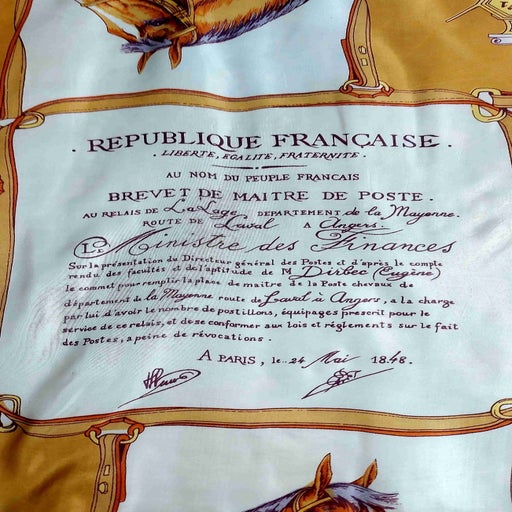 . REPUBLIQUE FRANÇAISE .
. LIBERTE, EGALITE, FRATERNITE .
AU NOM DU PEUPLE FRANCAIS
BREVET DE MAITRE DE POSTE .
AU RELAIS DE LaLage DEPARTEMENT de la Mayenne.
ROUTE DE Laval A Angers.
LE Ministre des Finances
Sur la présentation du Directeur général des Postes et d'après le compte
rendu des facultés et de l'aptitude de M Dirbec (Eugène)
le commet pour remplir la place de maitre de la Poste chevaux de
département de la Mayenne route de Laval à Angers, a la charge
par lui d'avoir le nombre de postillons, équipages prescrit pour le
service de ce relais, et de se conformer aux lois et règlements sur le fait
des Postes, a peine de révocations .
A PARIS, le .. 24 Mai 1848 .